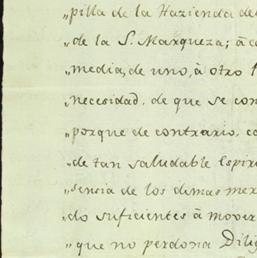 „pilla de la Hazienda de
„de la S. Marqueza; à c
„media, de uno, à otro l
„necesidad, de que se con
„porque de contrario, co
„de tan saludable Espiri
„sencia de los demas mer
„do suficientes à mover
„que no perdona Dilig